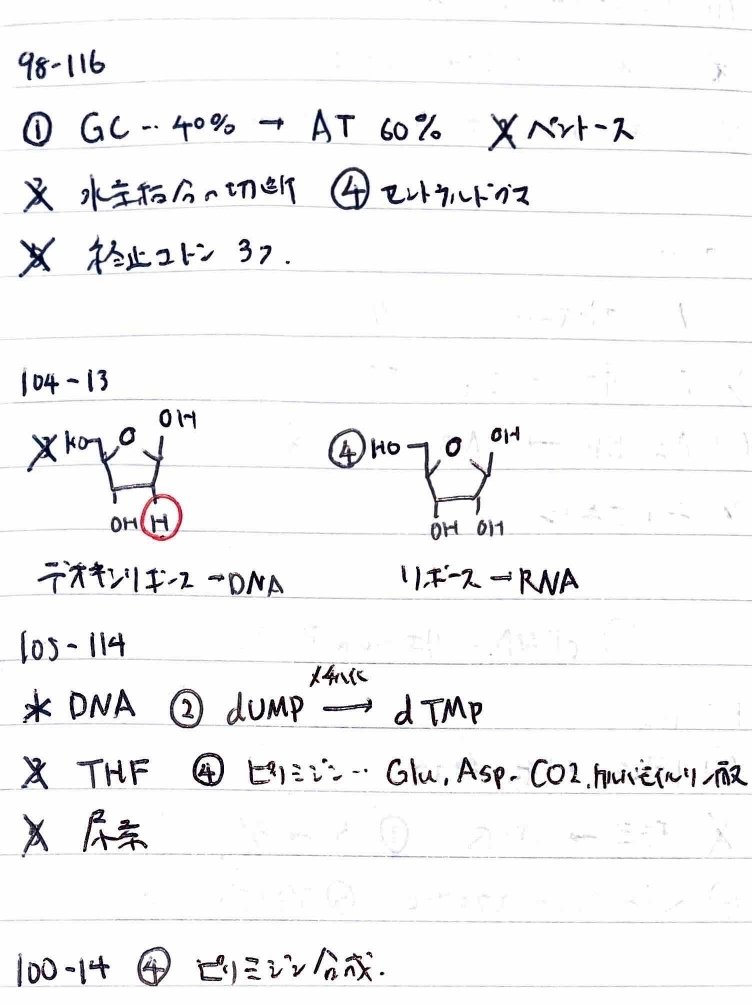 98-116
① GC… 40% → AT 60% 2 ペントース
3 水素結合の切断 ④ セントラルドグマ
5 終止コドン 3つ.
104-13
HO O OH ④ HO O OH
OH H OH OH
デオキシリボース→DNA リボース→RNA
105-114
メチル化
DNA ② dUMP → dTMP
3 THF ④ ピリミジン… Glu, Asp. CO2, カルバモイルリン酸
5 尿素
100-14 ④ ピリミジン合成.